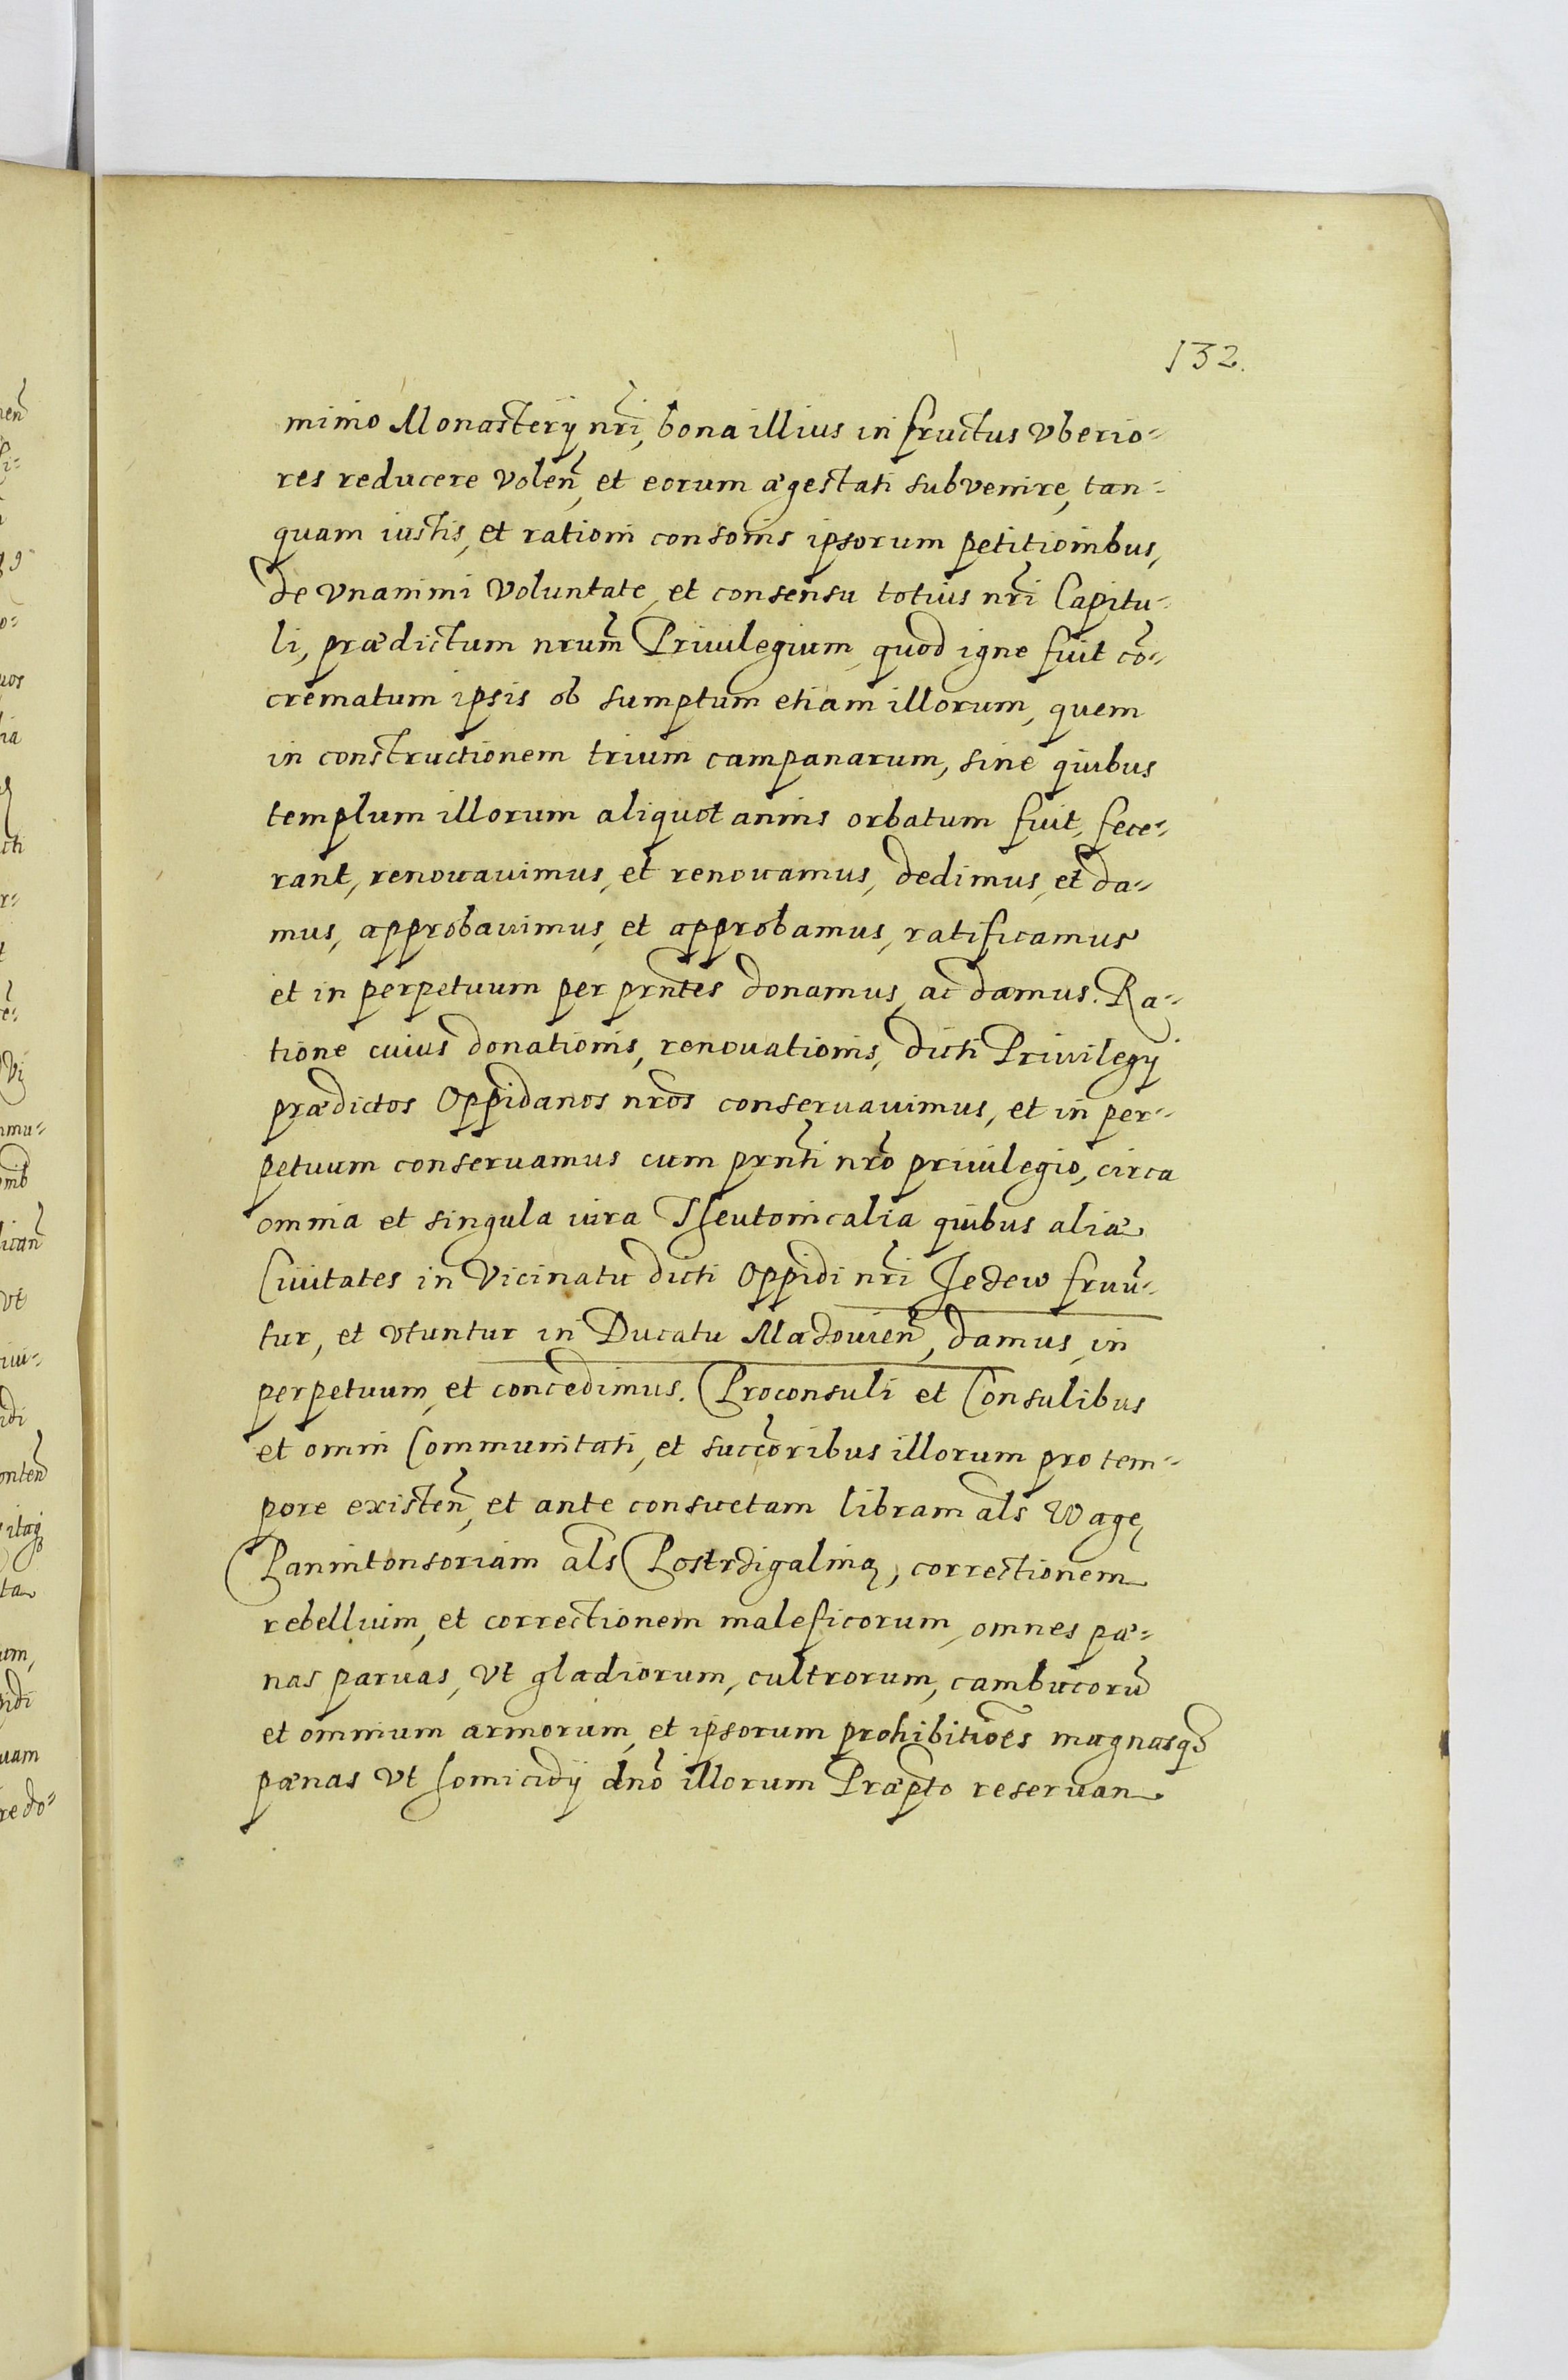 132.
minio Monasterij nr̃i, bona illius in fructus vberio=
res reducere volen̄, et eorum ægestati subvenire, tan=
quam iustis, et rationi consonis ipsorum petitionibus,
de vnanimi voluntate, et consensu totius nr̃i Capitu=
li, prædictum nrum̃ Privilegium, quod igne fuit cõ=
crematum ipsis ob sumptum etiam illorum, quem
in constructionem trium campanarum, sine quibus
templum illorum aliquot annis orbatum fuit, fece=
rant, renovavimus, et renovamus, dedimus, et da=
mus, approbavimus, et approbamus, ratificamus
et in perpetuum per prñtes donamus, ac damus. Ra=
tione cuius donationis, renovationis, dicti Privilegij
prædictos Oppidanos nrõs conservavimus, et in per=
petuum conservamus cum prñti nrõ privilegio, circa
omnia et singula iura Theutonicalia quibus aliæ
Civitates in Vicinatu dicti Oppidi nr̃i Jedew fruũ=
tur, et vtuntur in Ducatu Masovien̄, damus, in
perpetuum, et concedimus. Proconsuli et Consulibus
et omni Communitati, et succõribus illorum pro tem=
pore existen̄, et ante consuetam libram als Wagę
Pannitonsoriam als Postrdigalnią, correctionem
rebellium, et correctionem maleficorum, omnes pæ=
nas parvas, vt gladiorum, cultrorum, cambucorũ
et omnium armorum, et ipsorum prohibitiões magnasq3
pænas vt homicidij dnõ illorum Præpto reservan